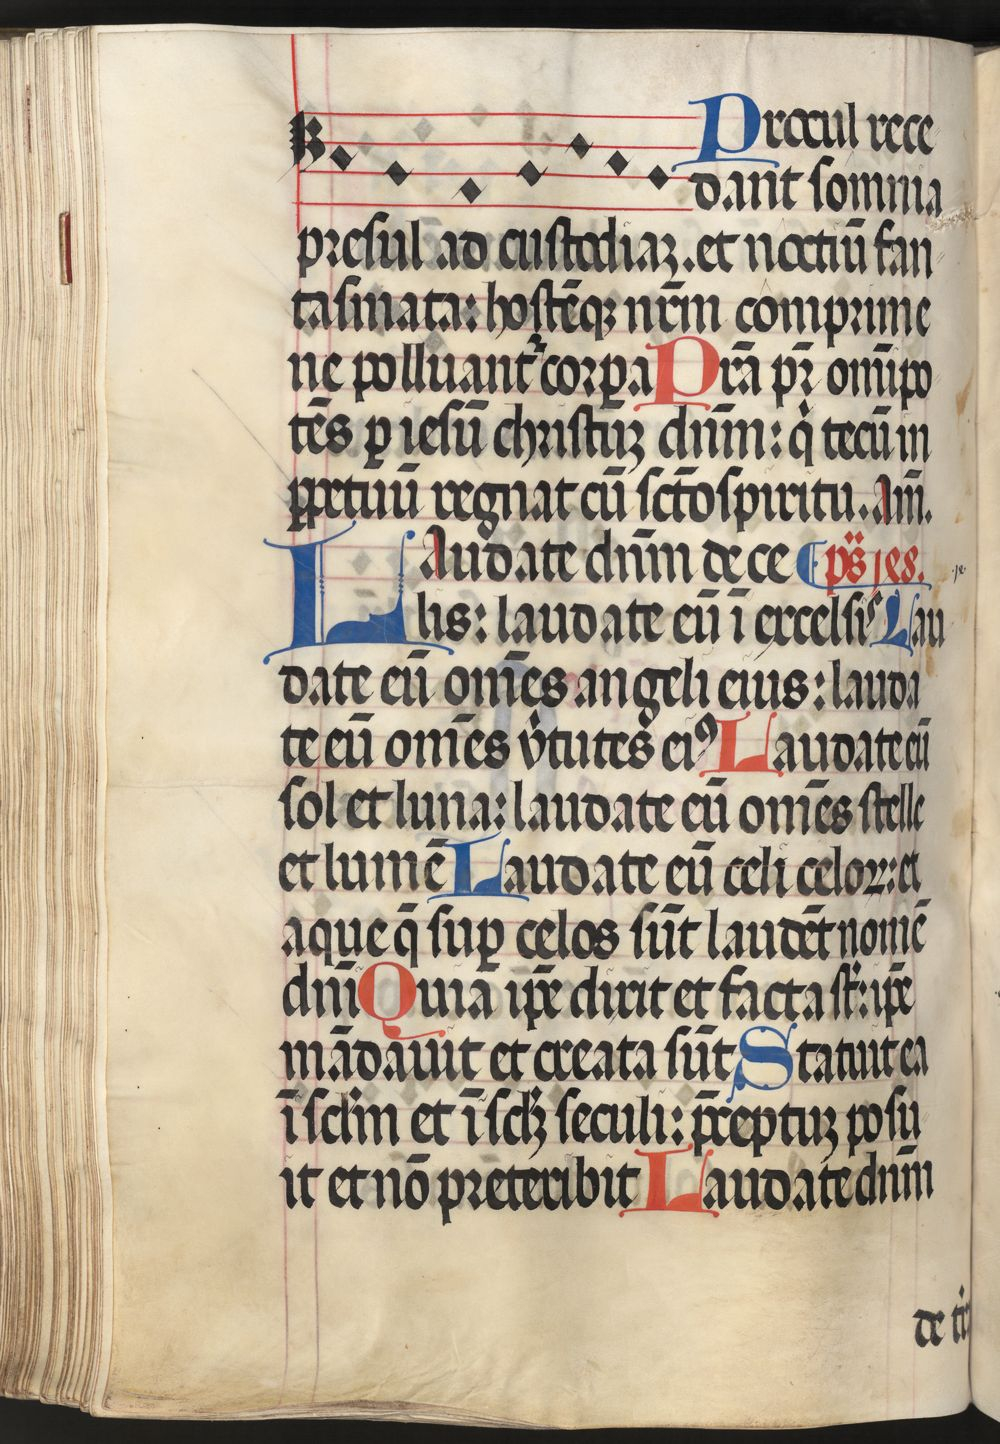 Procul rece
dant somnia
presul ad custodiaʒ. et noctiū fan
tasmata: hostēqʒ nr̄m comprime
ne polluantᷣ corꝑa Prā pr̄ omīpo
tēs ꝑ iesū christuʒ dn̄m: q̇ tecū in
ꝑpetuū regnat cū sct̄o spiritu. Am̄.
LAudate dn̄m de ce ps̄ 148.
lis: laudate eū ī excelsis Lau
date eū om̄es angeli eius: lauda
te eū om̄es v̇tutes eiꝰ Laudate eū
sol et luna: laudate eū om̄es stelle
et lumē Laudate eū celi celoꝝ: et
aque q̄ suꝑ celos sūt laudēt nomē
dn̄i Quia ip̄e dixit et facta st̄: ip̄e
mādauit et creata sūt Statuit ea
ī sclm̄ et ī sclʒ seculi: p̄ceptuʒ posu
it et nō preteribit Laudate dn̄m
de tr̄